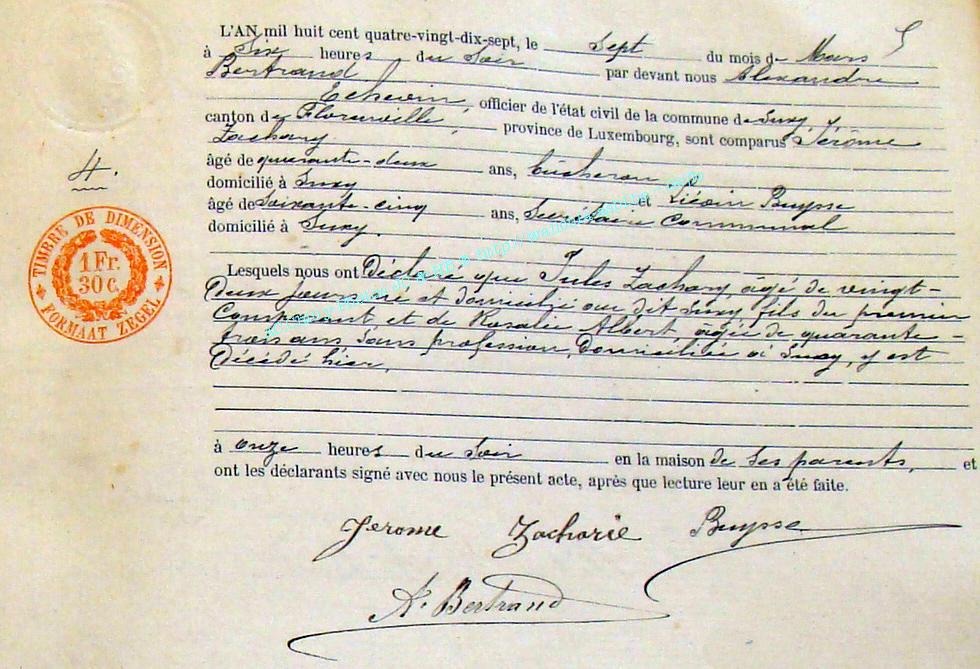 L'AN mil huit cent quatre-vingt-dix-sept, le Sept du mois de Mars
à Six heures du Soir par devant nous Alexandre
Bertrand
Echevin, officier de l'état civil de la commune de Suxy,
canton de Florenville, province de Luxembourg, sont comparus Jérôme
Zachary
âgé de quarante-deux ans, bûcheron
domicilié à Suxy et Liévin Buysse
âgé de Soixante-cinq ans, Secrétaire Communal
domicilié à Suxy.
Lesquels nous ont Déclaré que Jules Zachary, âgé de vingt-
deux jours né et domicilié au dit Suxy fils du premier
Comparant et de Rosalie Albert âgée de quarante-
trois ans Sans profession, Domiciliée à Suxy, y est
Décédé hier,
à onze heures du Soir en la maison de ses parents, et
ont les déclarants signé avec nous le présent acte, après que lecture leur en a été faite.
Jerome Zacharie Buysse
A. Bertrand
4.
TIMBRE DE DIMENSION
1 Fr.
30 C.
FORMAAT ZEGEL